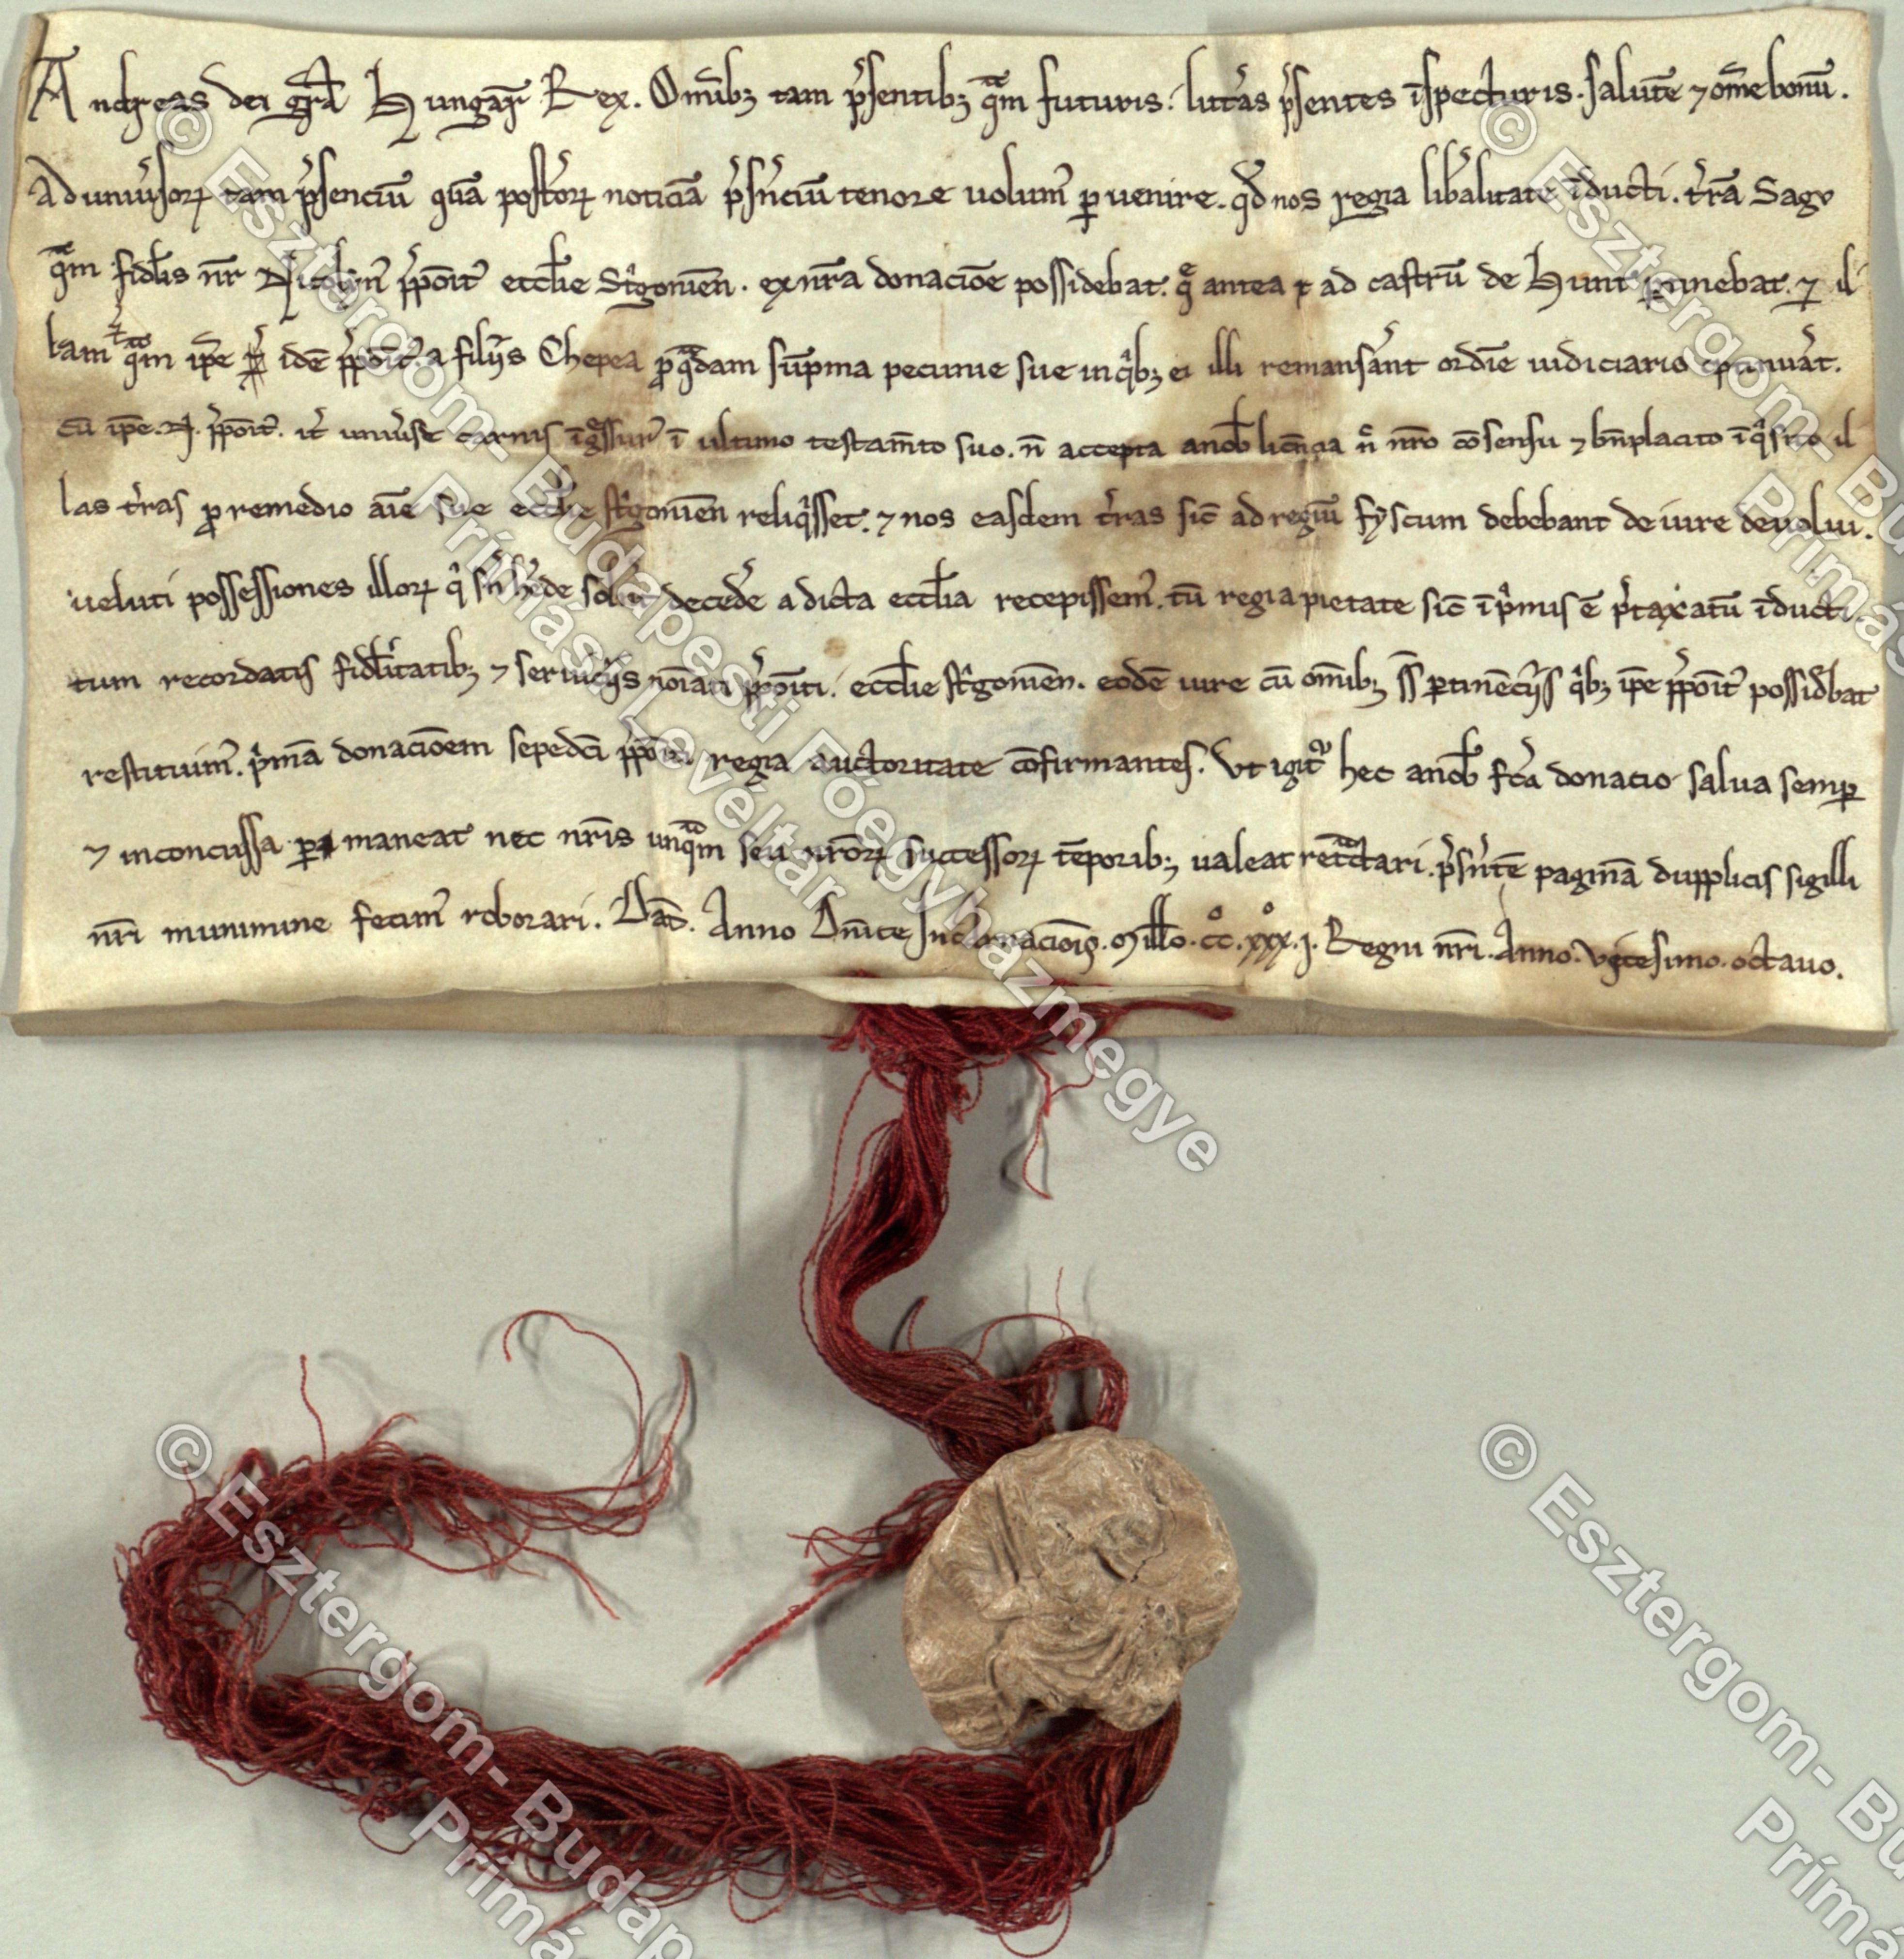 Andreas dei gr̄a Hungar̄ Rex. Om̄ib; tam p̄sentib; qᵃm futuris. litt̄as p̄sentes īspecturis. salutē ⁊ om̄e bonū.
Ad univ̄sorꝝ tam p̄senciū quā post̄orꝝ noticiā p̄sn̄ciū tenore uolum᾿ ꝑuenire. qd̄ nos regia lib̄alitate īducti. t̄rā Sagv
qᵃm fidel̄is nr̄ p̄poīt᾿ eccl̄ie St̓gonien̄. ex nr̄a donaciōe possidebat. q̄ antea ad castrū de Hunt ꝑtinebat. ⁊ il
lam qᵃm ip̄e idē p̄poīt᾿ a filiis Chepea ꝓ qᵃdam sūpma pecunie sue in qⁱb; ei illi remanser̄ant ordīe iudiciario
cū ip̄e. N. p̄poīt᾿. it̄ univ̄se carnis īgᵉssur᾿ ī ultimo testam̄to suo. n̄ accepta a nob̄ licn̄cia nᵉ nr̄o cōsensu ⁊ bn̄placito īqⁱsito il
las t̄ras ꝓ remedio aīe sue eccl̄ie st̓gonien̄ reliqⁱsset. ⁊ nos easdem t̄ras sic̄ ad regiū fyscum debebant de iure deuolui.
ueluti possessiones illorꝝ qⁱ sn̄ h̄ede deced̄e a dicta eccl̄ia recepissem᾿. tū regia pietate sic̄ ī pⁱmis ē p̄taxatū īducti
tum recordatis fidel̄itatib; ⁊ serviciis noīati p̄poīti. eccl̄ie st̓gonien̄. eodē iure cū om̄ib; ꝑtinēciis qⁱb; ip̄e p̄poīt᾿ possideb̄at
restituim᾿. pⁱmā donaciōem sepedc̄i p̄poīti regia auctoritate cōfirmantes. Vt igit᾿ hec a nob̄ fc̄a donacio salua semꝑ
⁊ inconcussa ꝑmaneat nec nr̄is unqᵃm seu nr̄orꝝ successorꝝ tēporib; ualeat retᵃctari. p̄sn̄tē paginā dupplicis sigilli
nr̄i munimine fecim᾿ roborari. Dat̄. Anno Dn̄ice Incarnaciōis. Mill̄o. cc̊. xxx̊. j. Regni nr̄i. Anno. vicesimo. octauo.
© Esztergom- Budapesti Főegyházmegye
Prímási Levéltár
© Esztergom- Bu
Prímás
© Esztergom- Budap
Prímá
© Esztergom- Bu
Prímá